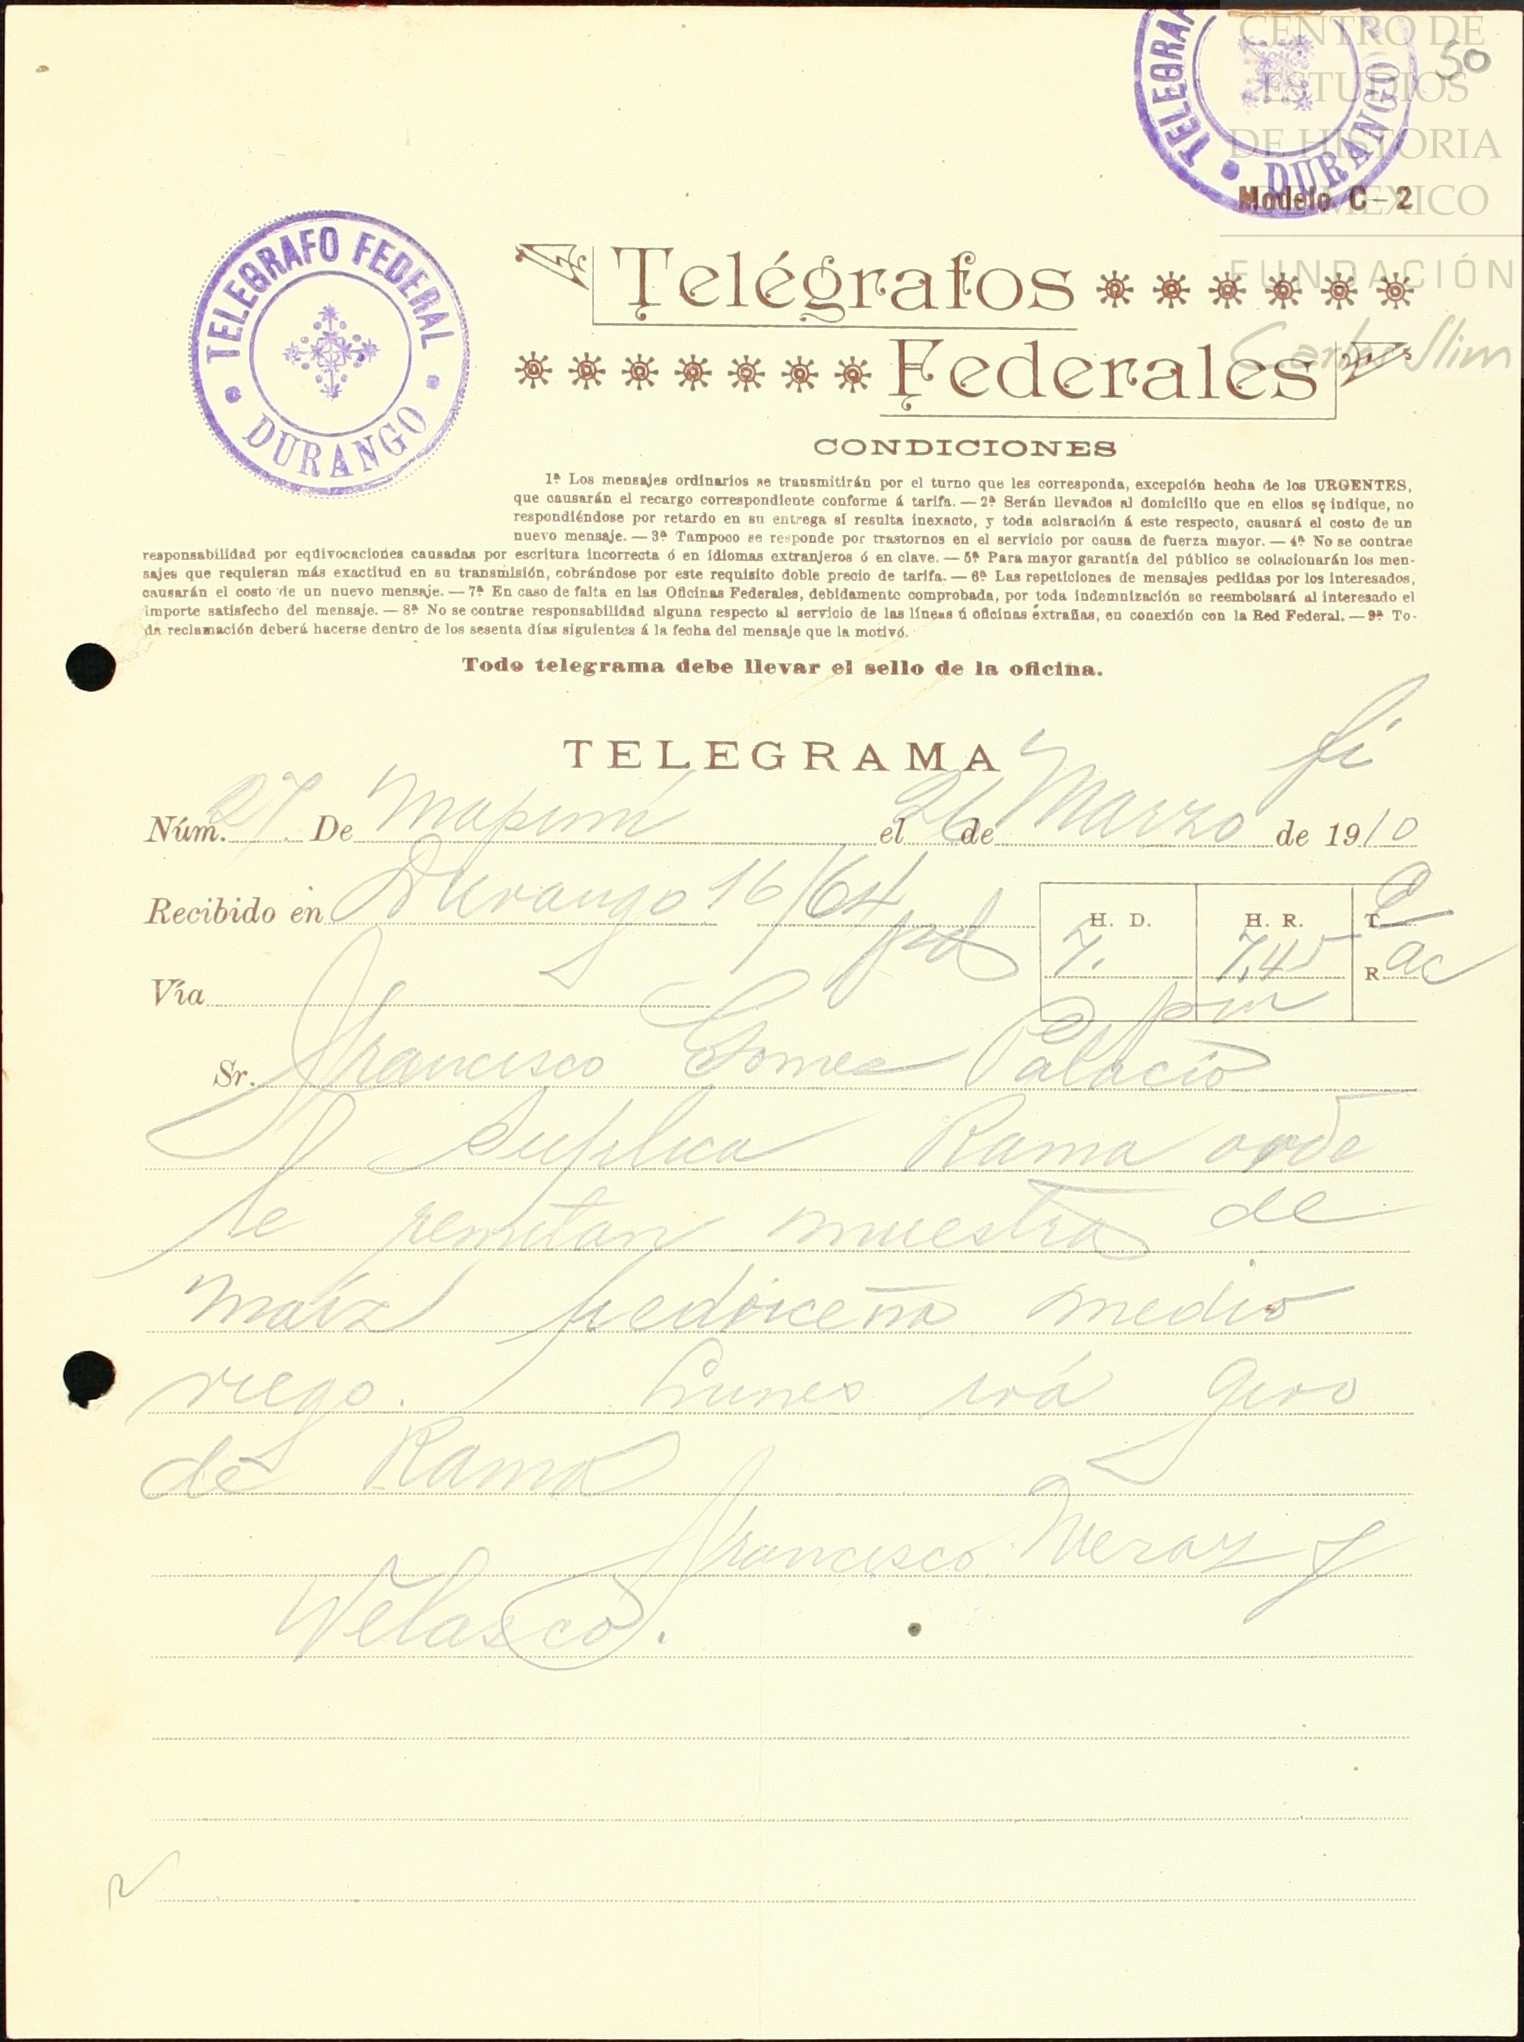 50
CENTRO DE
ESTUDIOS
DE HISTORIA
DE MEXICO
FUNDACIÓN
Carlos Slim
TELEGRAF
DURANGO
Modelo C-2
TELEGRAFO FEDERAL
DURANGO
Telégrafos
Federales
CONDICIONES
1ª Los mensajes ordinarios se transmitirán por el turno que les corresponda, excepción hecha de los URGENTES,
que causarán el recargo correspondiente conforme á tarifa. — 2ª Serán llevados al domicilio que en ellos se indique, no
respondiéndose por retardo en su entrega si resulta inexacto, y toda aclaración á este respecto, causará el costo de un
nuevo mensaje. — 3ª Tampoco se responde por trastornos en el servicio por causa de fuerza mayor. — 4ª No se contrae
responsabilidad por equivocaciones causadas por escritura incorrecta ó en idiomas extranjeros ó en clave. — 5ª Para mayor garantía del público se colacionarán los men-
sajes que requieran más exactitud en su transmisión, cobrándose por este requisito doble precio de tarifa. — 6ª Las repeticiones de mensajes pedidas por los interesados,
causarán el costo de un nuevo mensaje. — 7ª En caso de falta en las Oficinas Federales, debidamente comprobada, por toda indemnización se reembolsará al interesado el
importe satisfecho del mensaje. — 8ª No se contrae responsabilidad alguna respecto al servicio de las líneas ú oficinas extrañas, en conexión con la Red Federal. — 9ª To-
da reclamación deberá hacerse dentro de los sesenta días siguientes á la fecha del mensaje que la motivó.
Todo telegrama debe llevar el sello de la oficina.
TELEGRAMA
Núm. 27. De Mapimí el 26 de Marzo de 1910
Recibido en Durango 16/64 H. D. 7. H. R. 7,45 T R ac
Vía pm
Sr. Francisco Gomez Palacio
Suplica Rama orde
le remitan muestra de
maíz pedriceña medio
riego. Lunes irá giro
de Rama
Francisco Meraz y
Velasco.